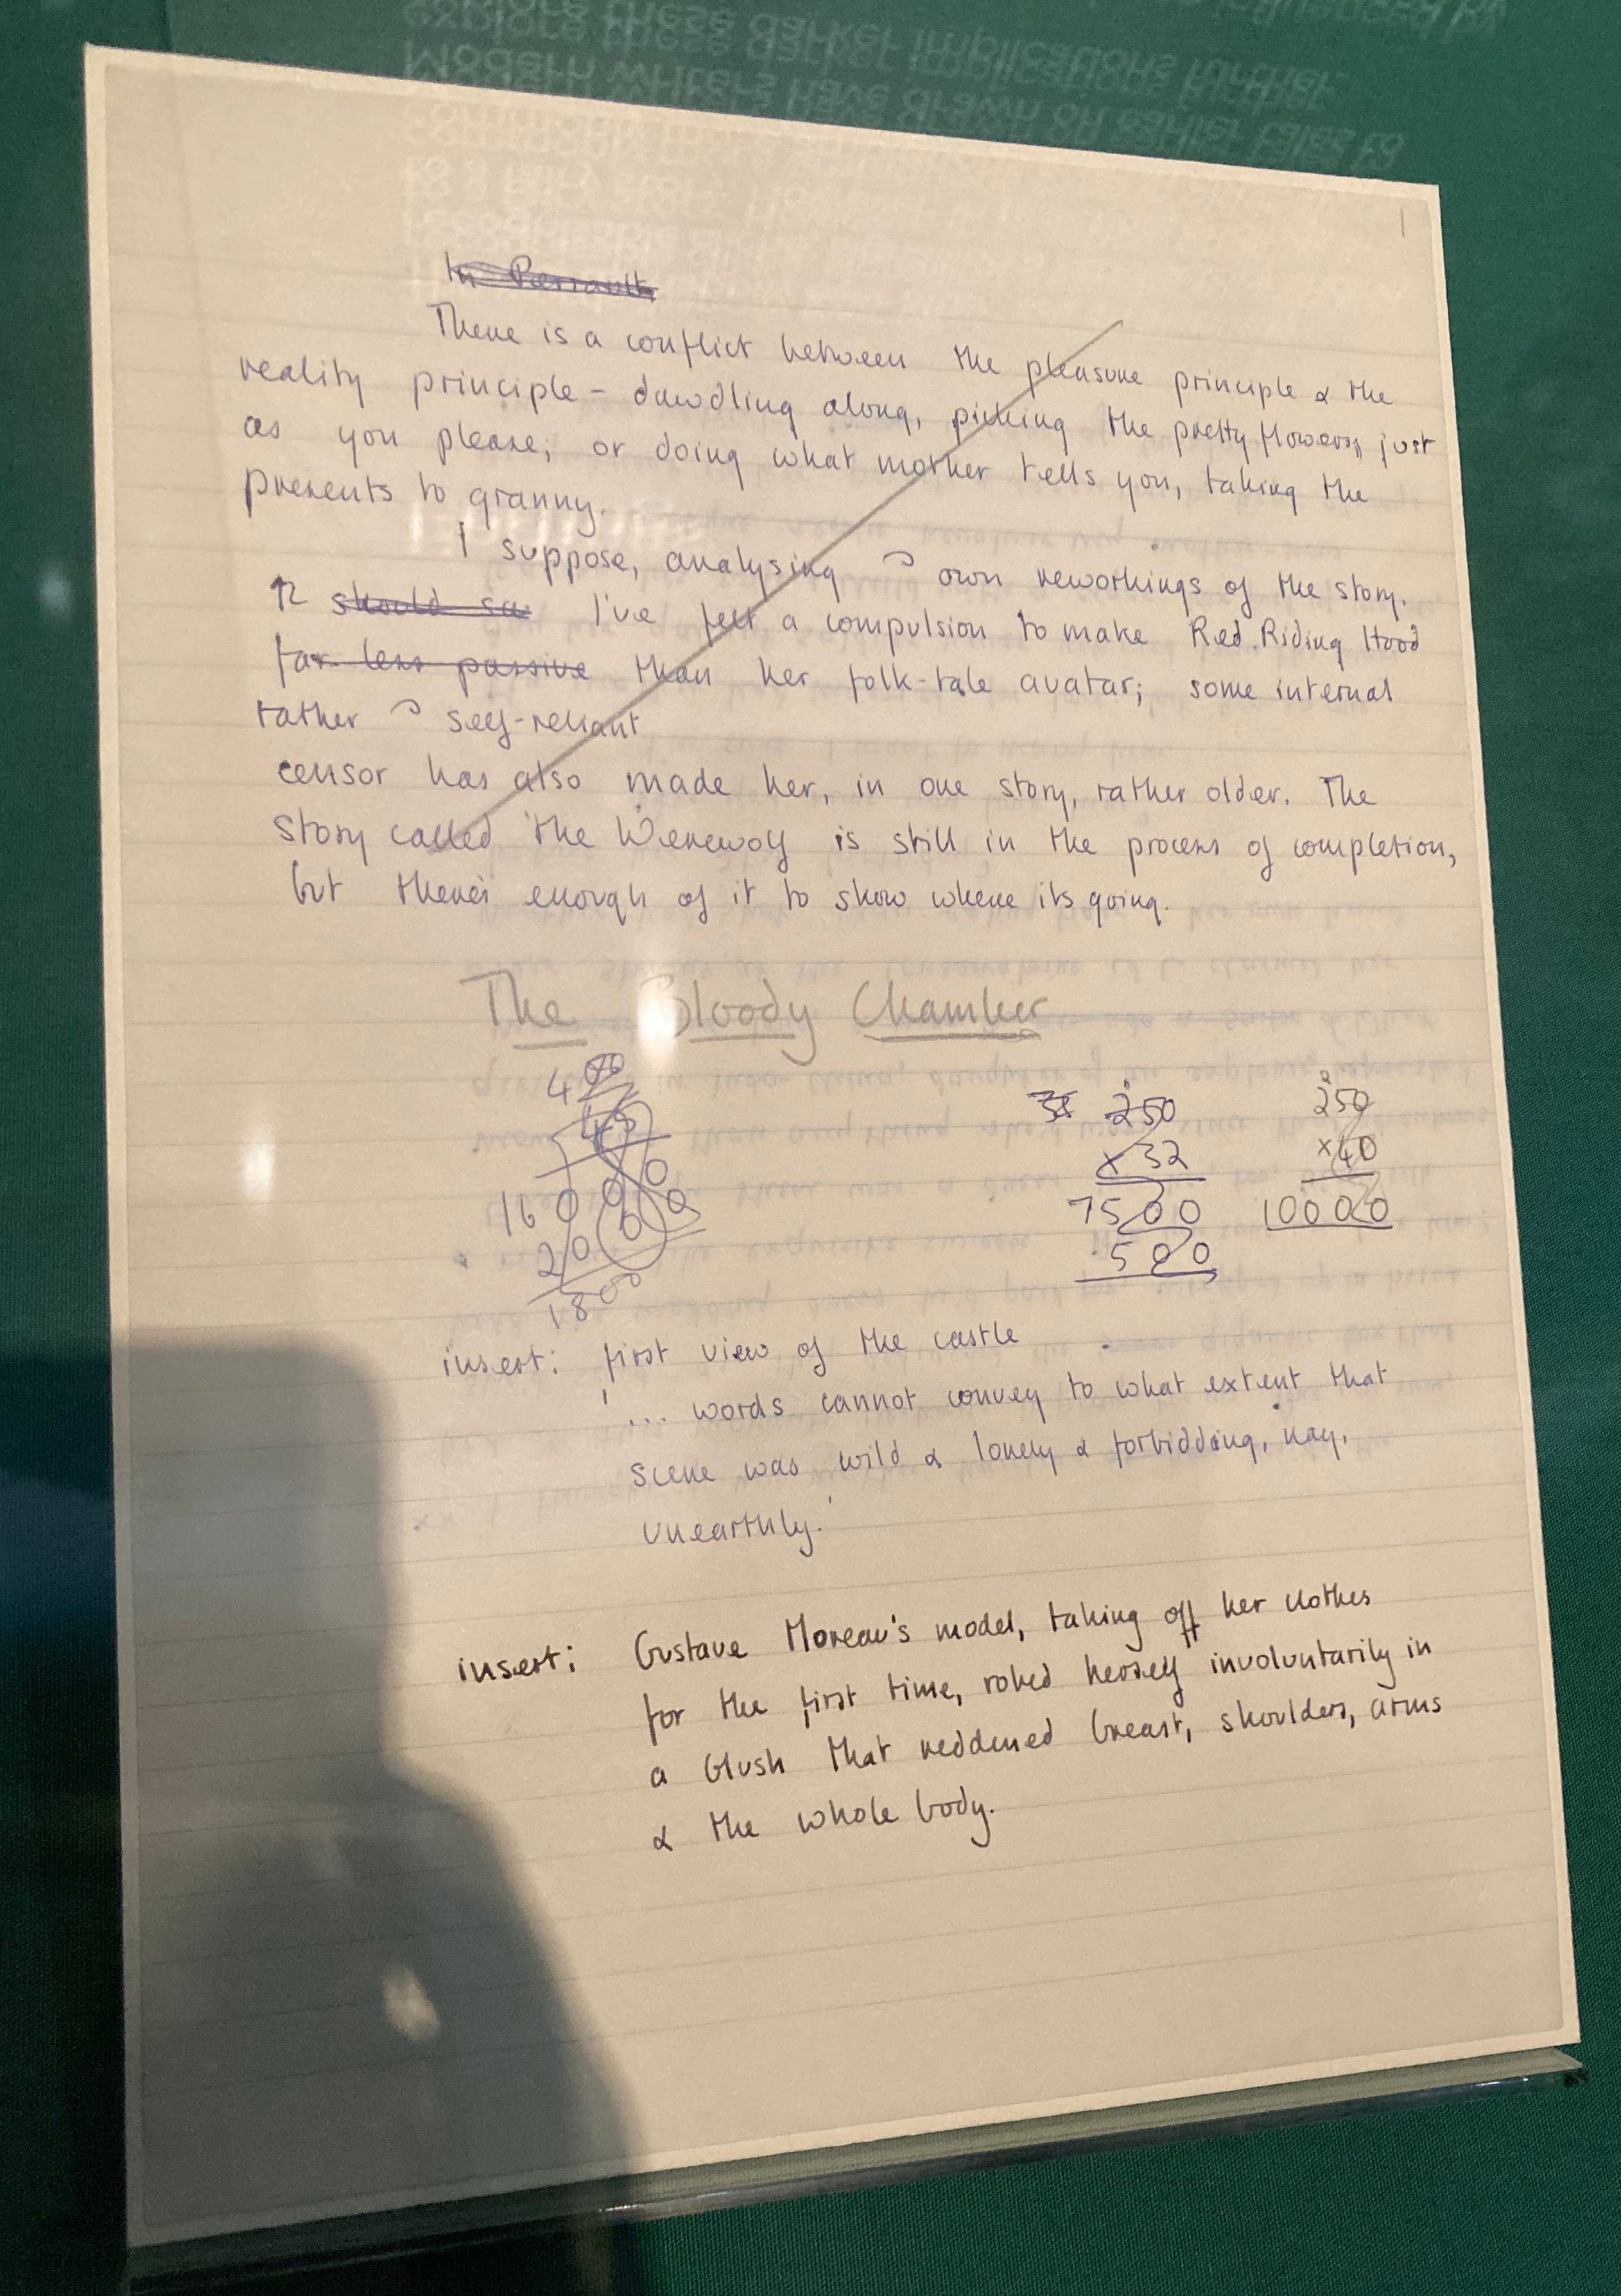 Modern writers have drawn on earlier tales to
explore these darker implications further.
1
In Perrault
There is a conflict between the pleasure principle & the
reality principle – dawdling along, picking the pretty flowers, just
as you please; or doing what mother tells you, taking the
presents to granny.
I suppose, analysing own reworkings of the story.
should I've felt a compulsion to make Red Riding Hood
far less passive than her folk-tale avatar; some internal
rather self-reliant
censor has also made her, in one story, rather older. The
story called 'The Werewolf is still in the process of completion,
but there's enough of it to show where its going.
The Bloody Chamber
400
45
1600 0
20 0 0
1800
250
x 32
7500
500
250
x 40
10000
insert: first view of the castle
'... words cannot convey to what extent that
scene was wild & lonely & forbidding, nay,
unearthly.'
insert: Gustave Moreau's model, taking off her clothes
for the first time, robed herself involuntarily in
a blush that reddened breast, shoulders, arms
& the whole body.